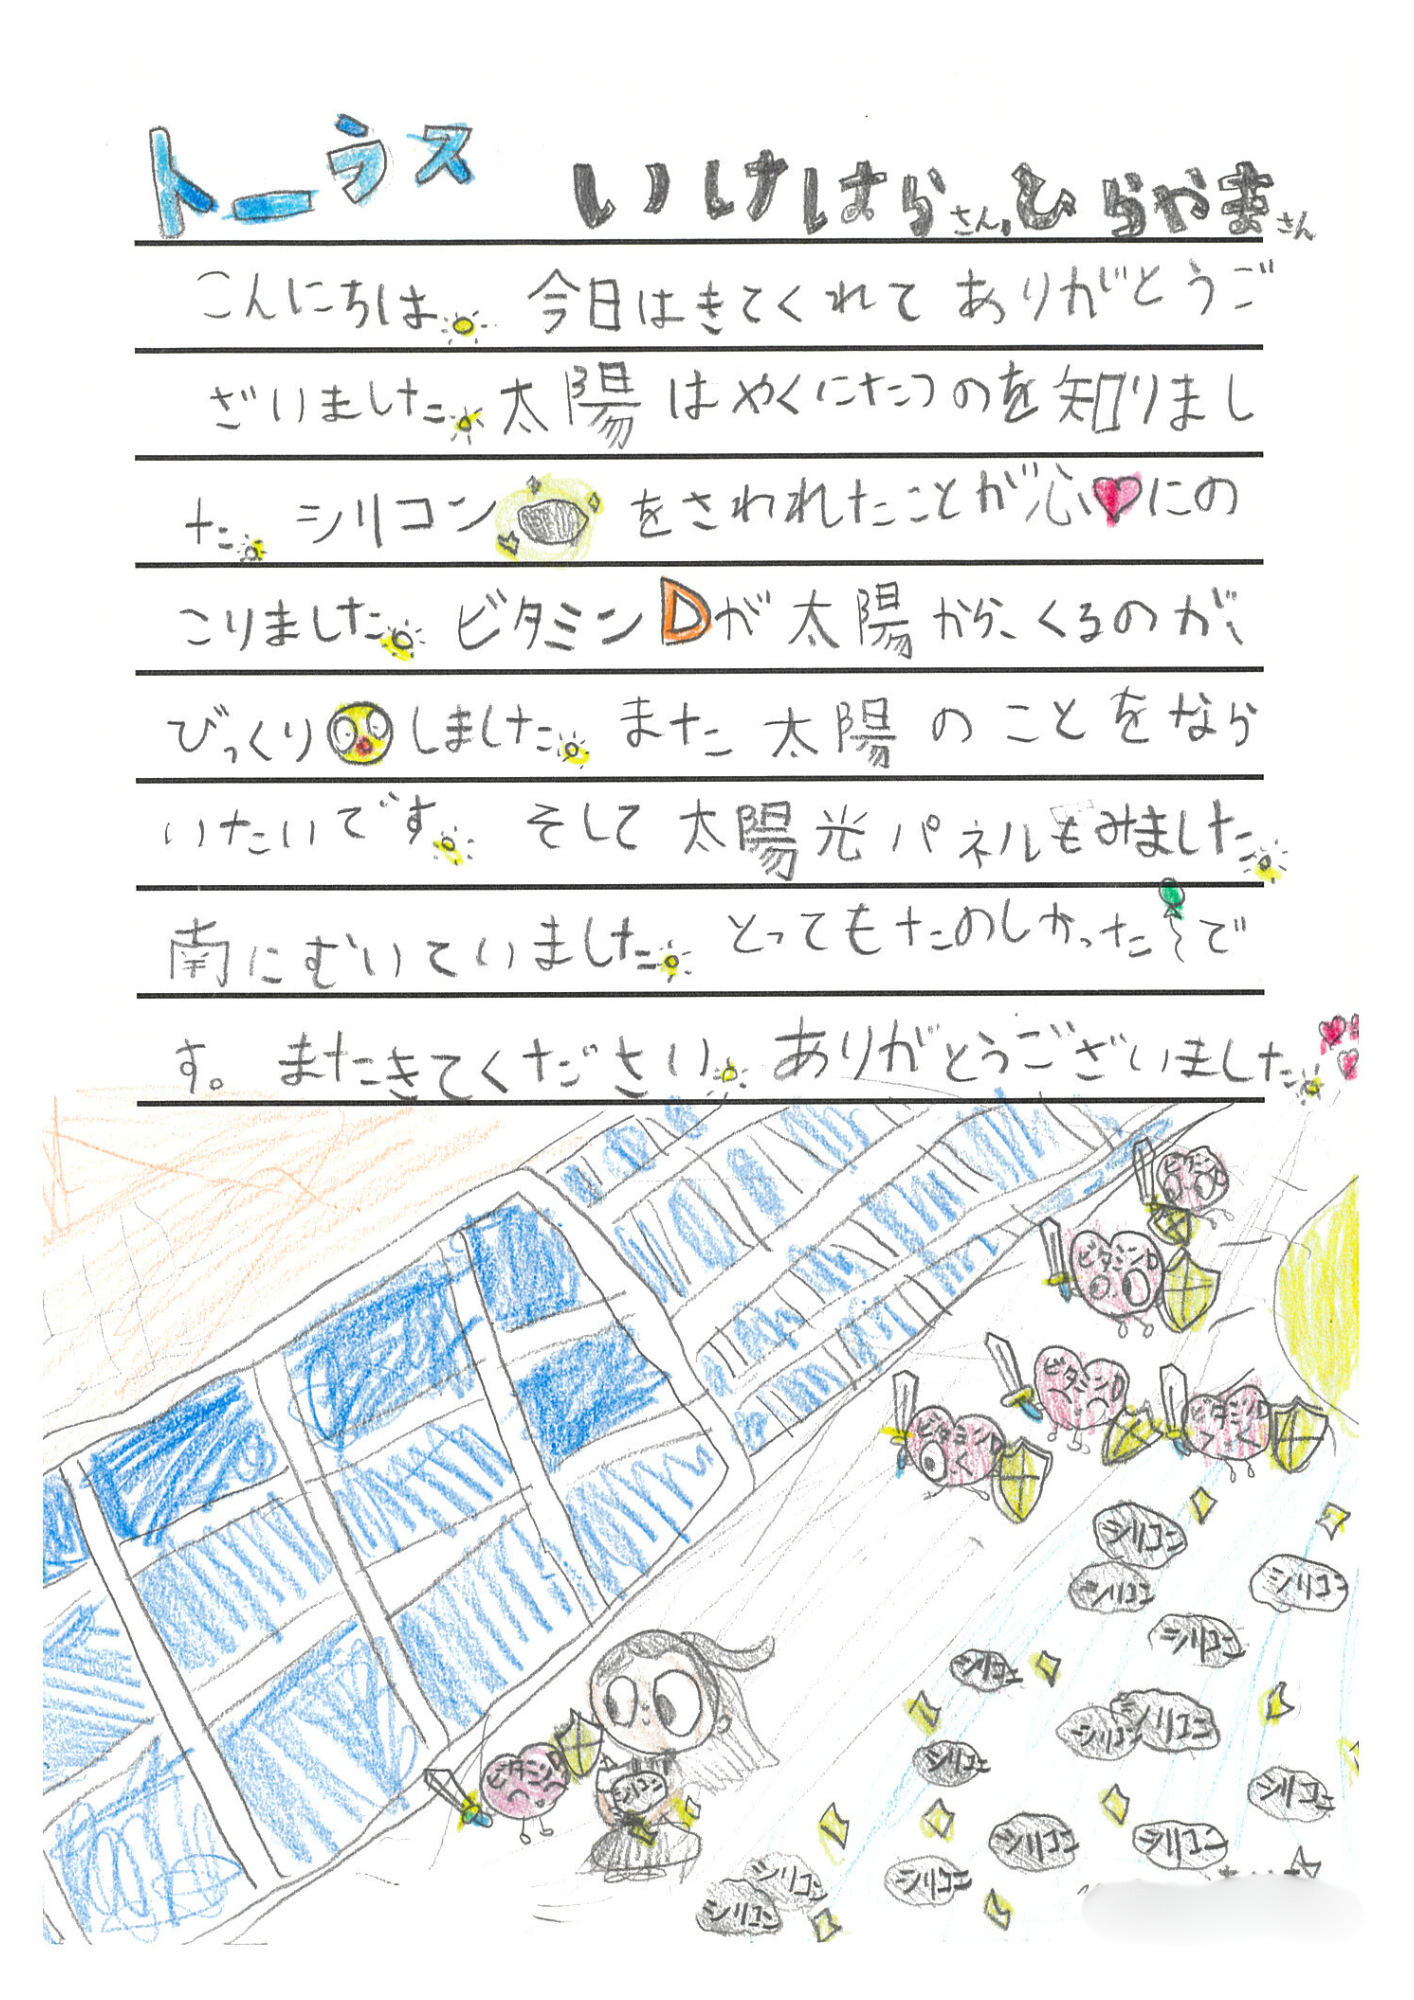 トーラス いけはらさん。ひらやまさん
こんにちは。今日はきてくれてありがとうご
ざいました。太陽はやくにたつのを知りまし
た。シリコンをさわれたことが心にの
こりました。ビタミンDが太陽から、くるのが、
びっくりしました。また太陽のことをなら
いたいです。そして太陽光パネルもみました。
南にむいていました。とってもたのしかったで
す。またきてください。ありがとうございました。
ビタミンD
ビタミンD
ビタミンD
ビタミンD
ビタミンD
シリコン
シリコン
シリコン
シリコン
シリコン
シリコン
シリコン
シリコン
シリコン
ビタミンD
シリコン
シリコン
シリコン
シリコン
シリコン
シリコン